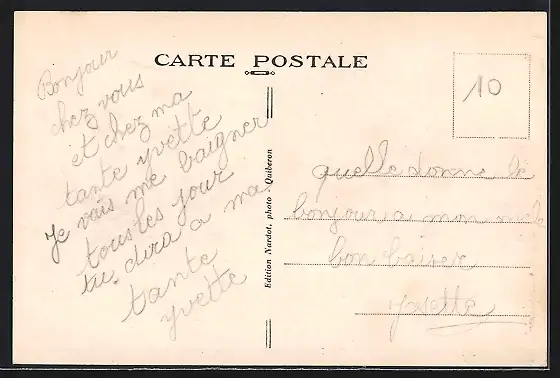 CARTE POSTALE
Bonjour
chez vous
et chez ma
tante yvette
Je vais me baigner
tous les jour
tu dira a ma
tante
yvette
Edition Nardot, photo - Quiberon
10
quelle donne le
bonjour a mon
bon baiser
yvette